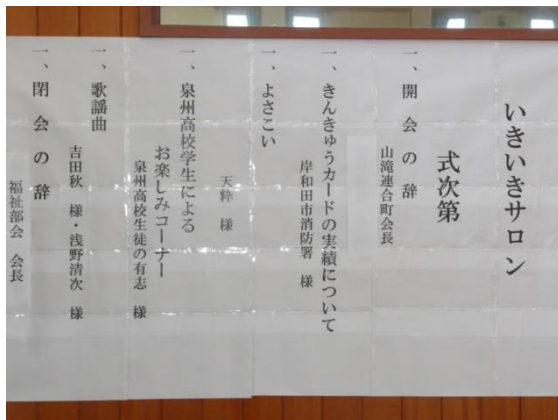 いきいきサロン
式次第
一、開会の辞
山滝連合町会長
一、きんきゅうカードの実績について
岸和田市消防署 様
一、よさこい
天粋 様
一、泉州高校学生による
お楽しみコーナー
泉州高校生徒の有志 様
一、歌謡曲
吉田秋 様・浅野清次 様
一、閉会の辞
福祉部会 会長